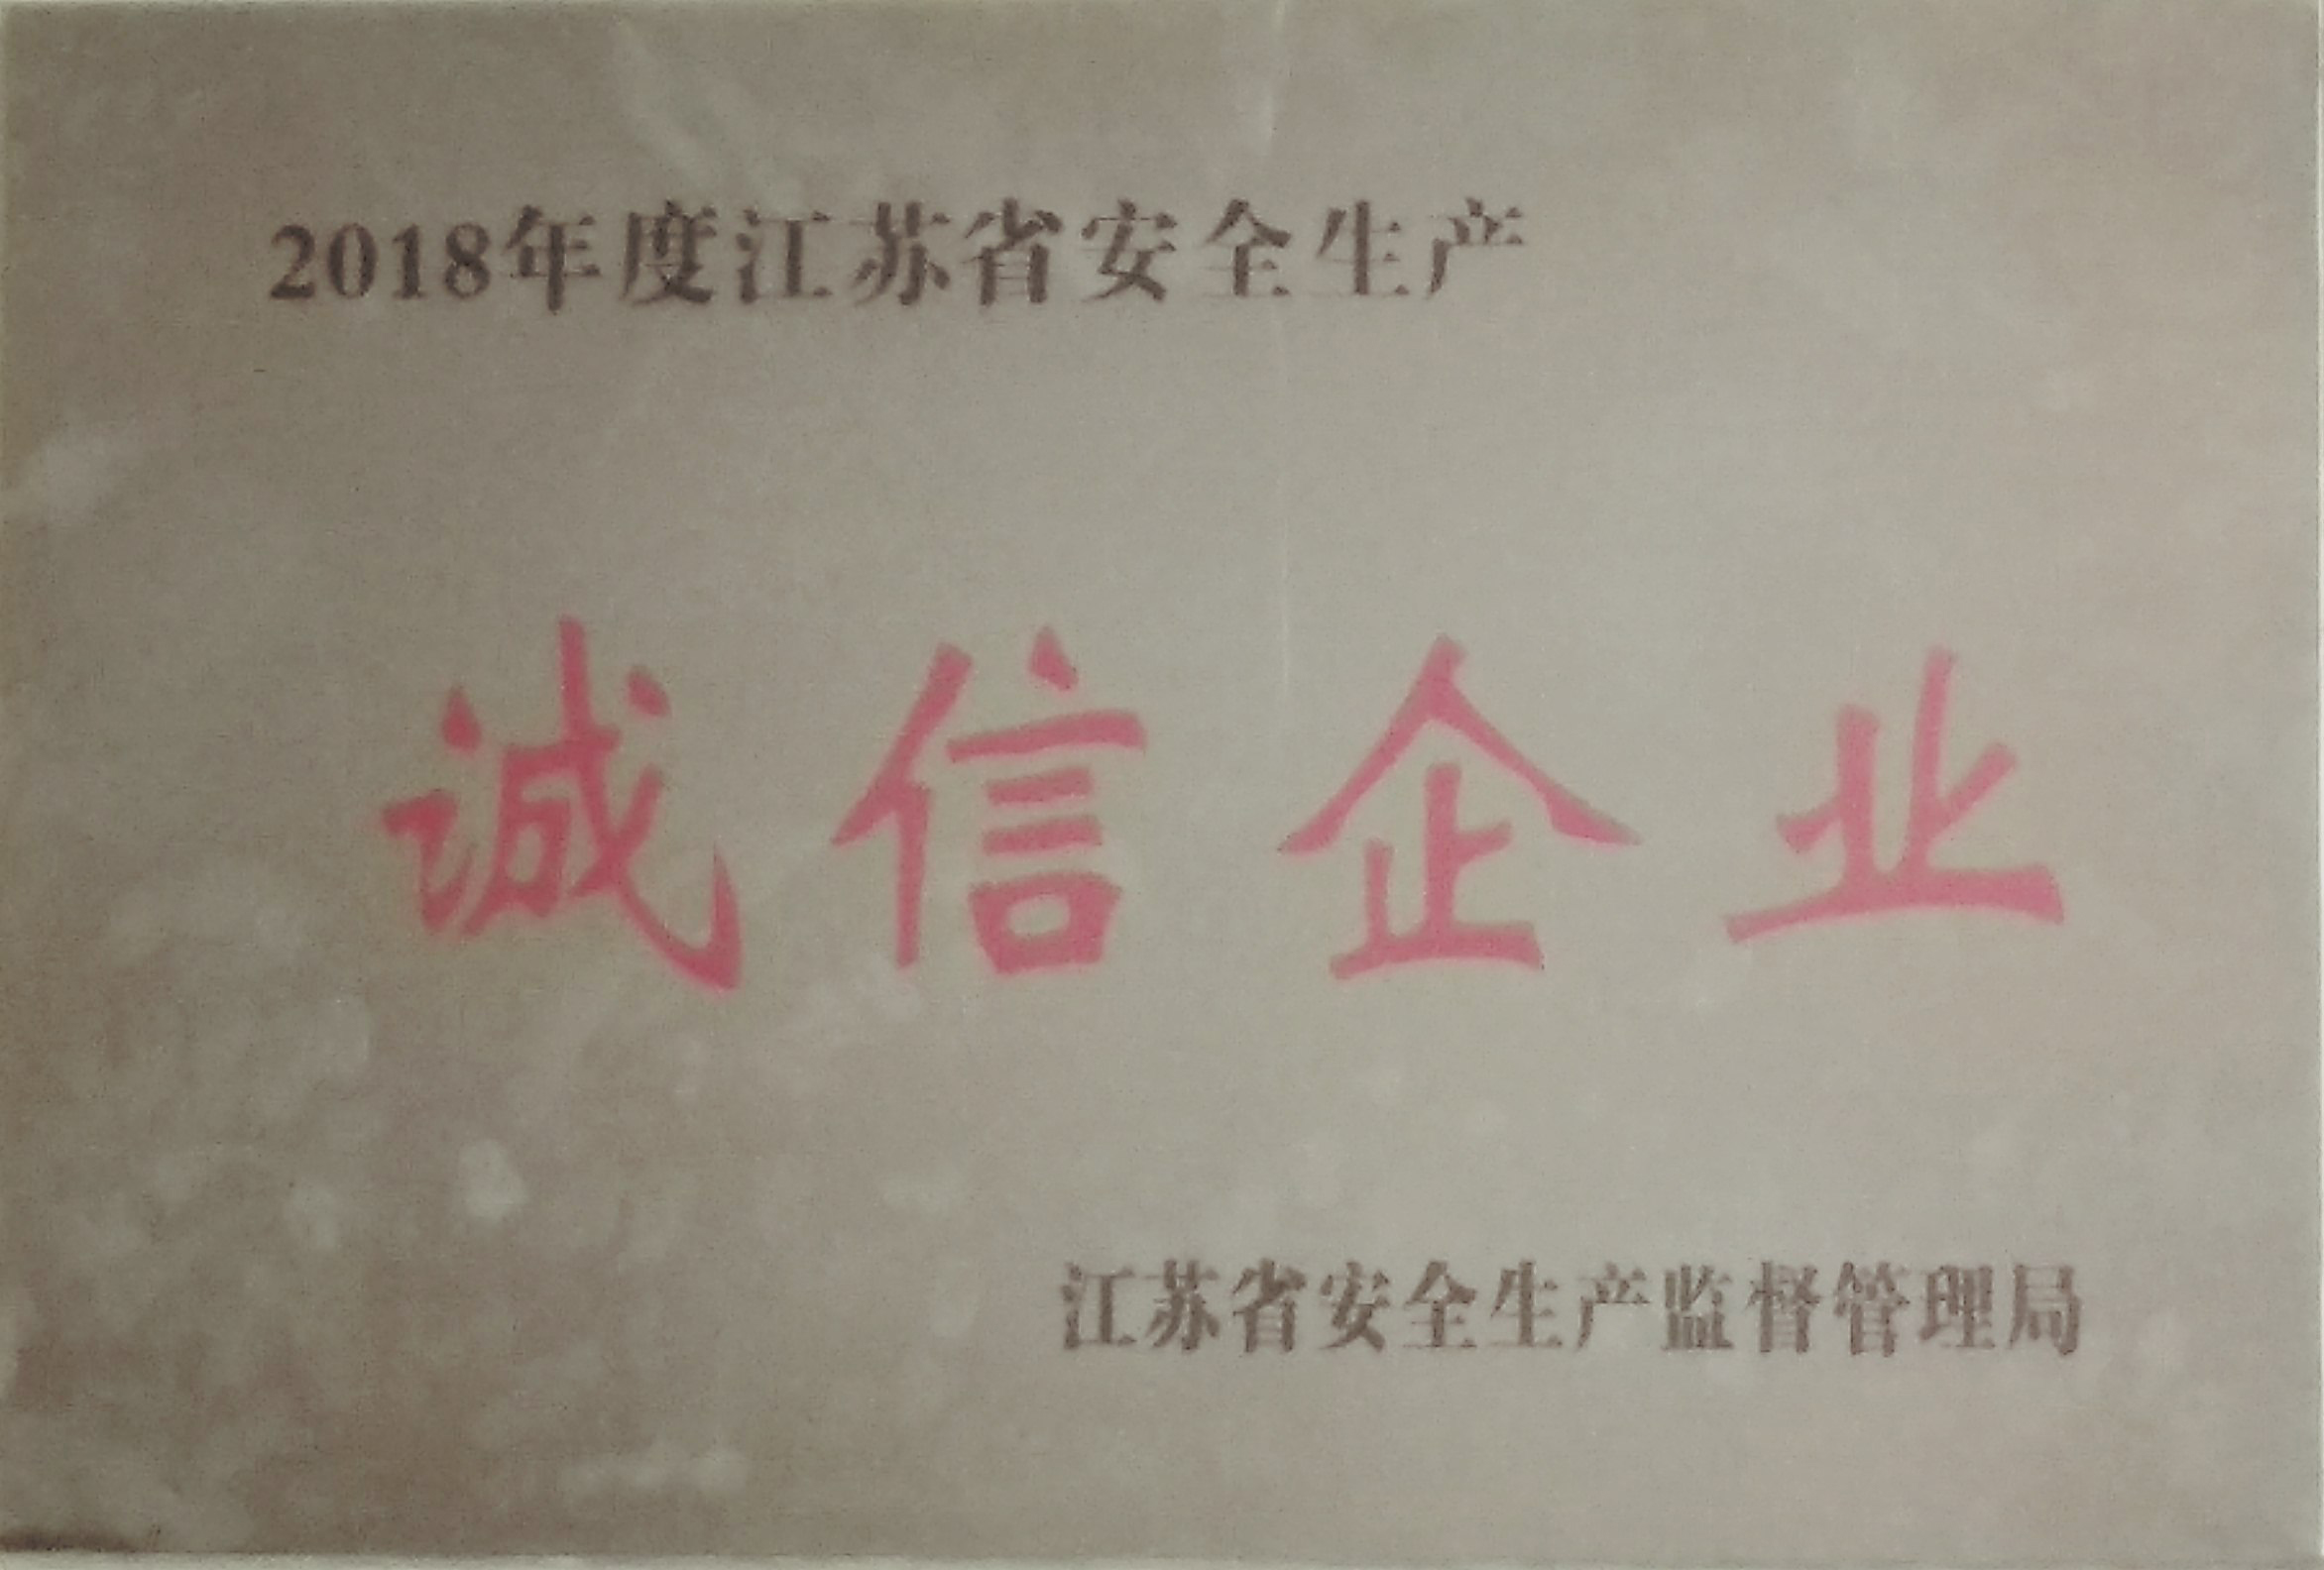 2018年度江苏省安全生产
诚信企业
江苏省安全生产监督管理局